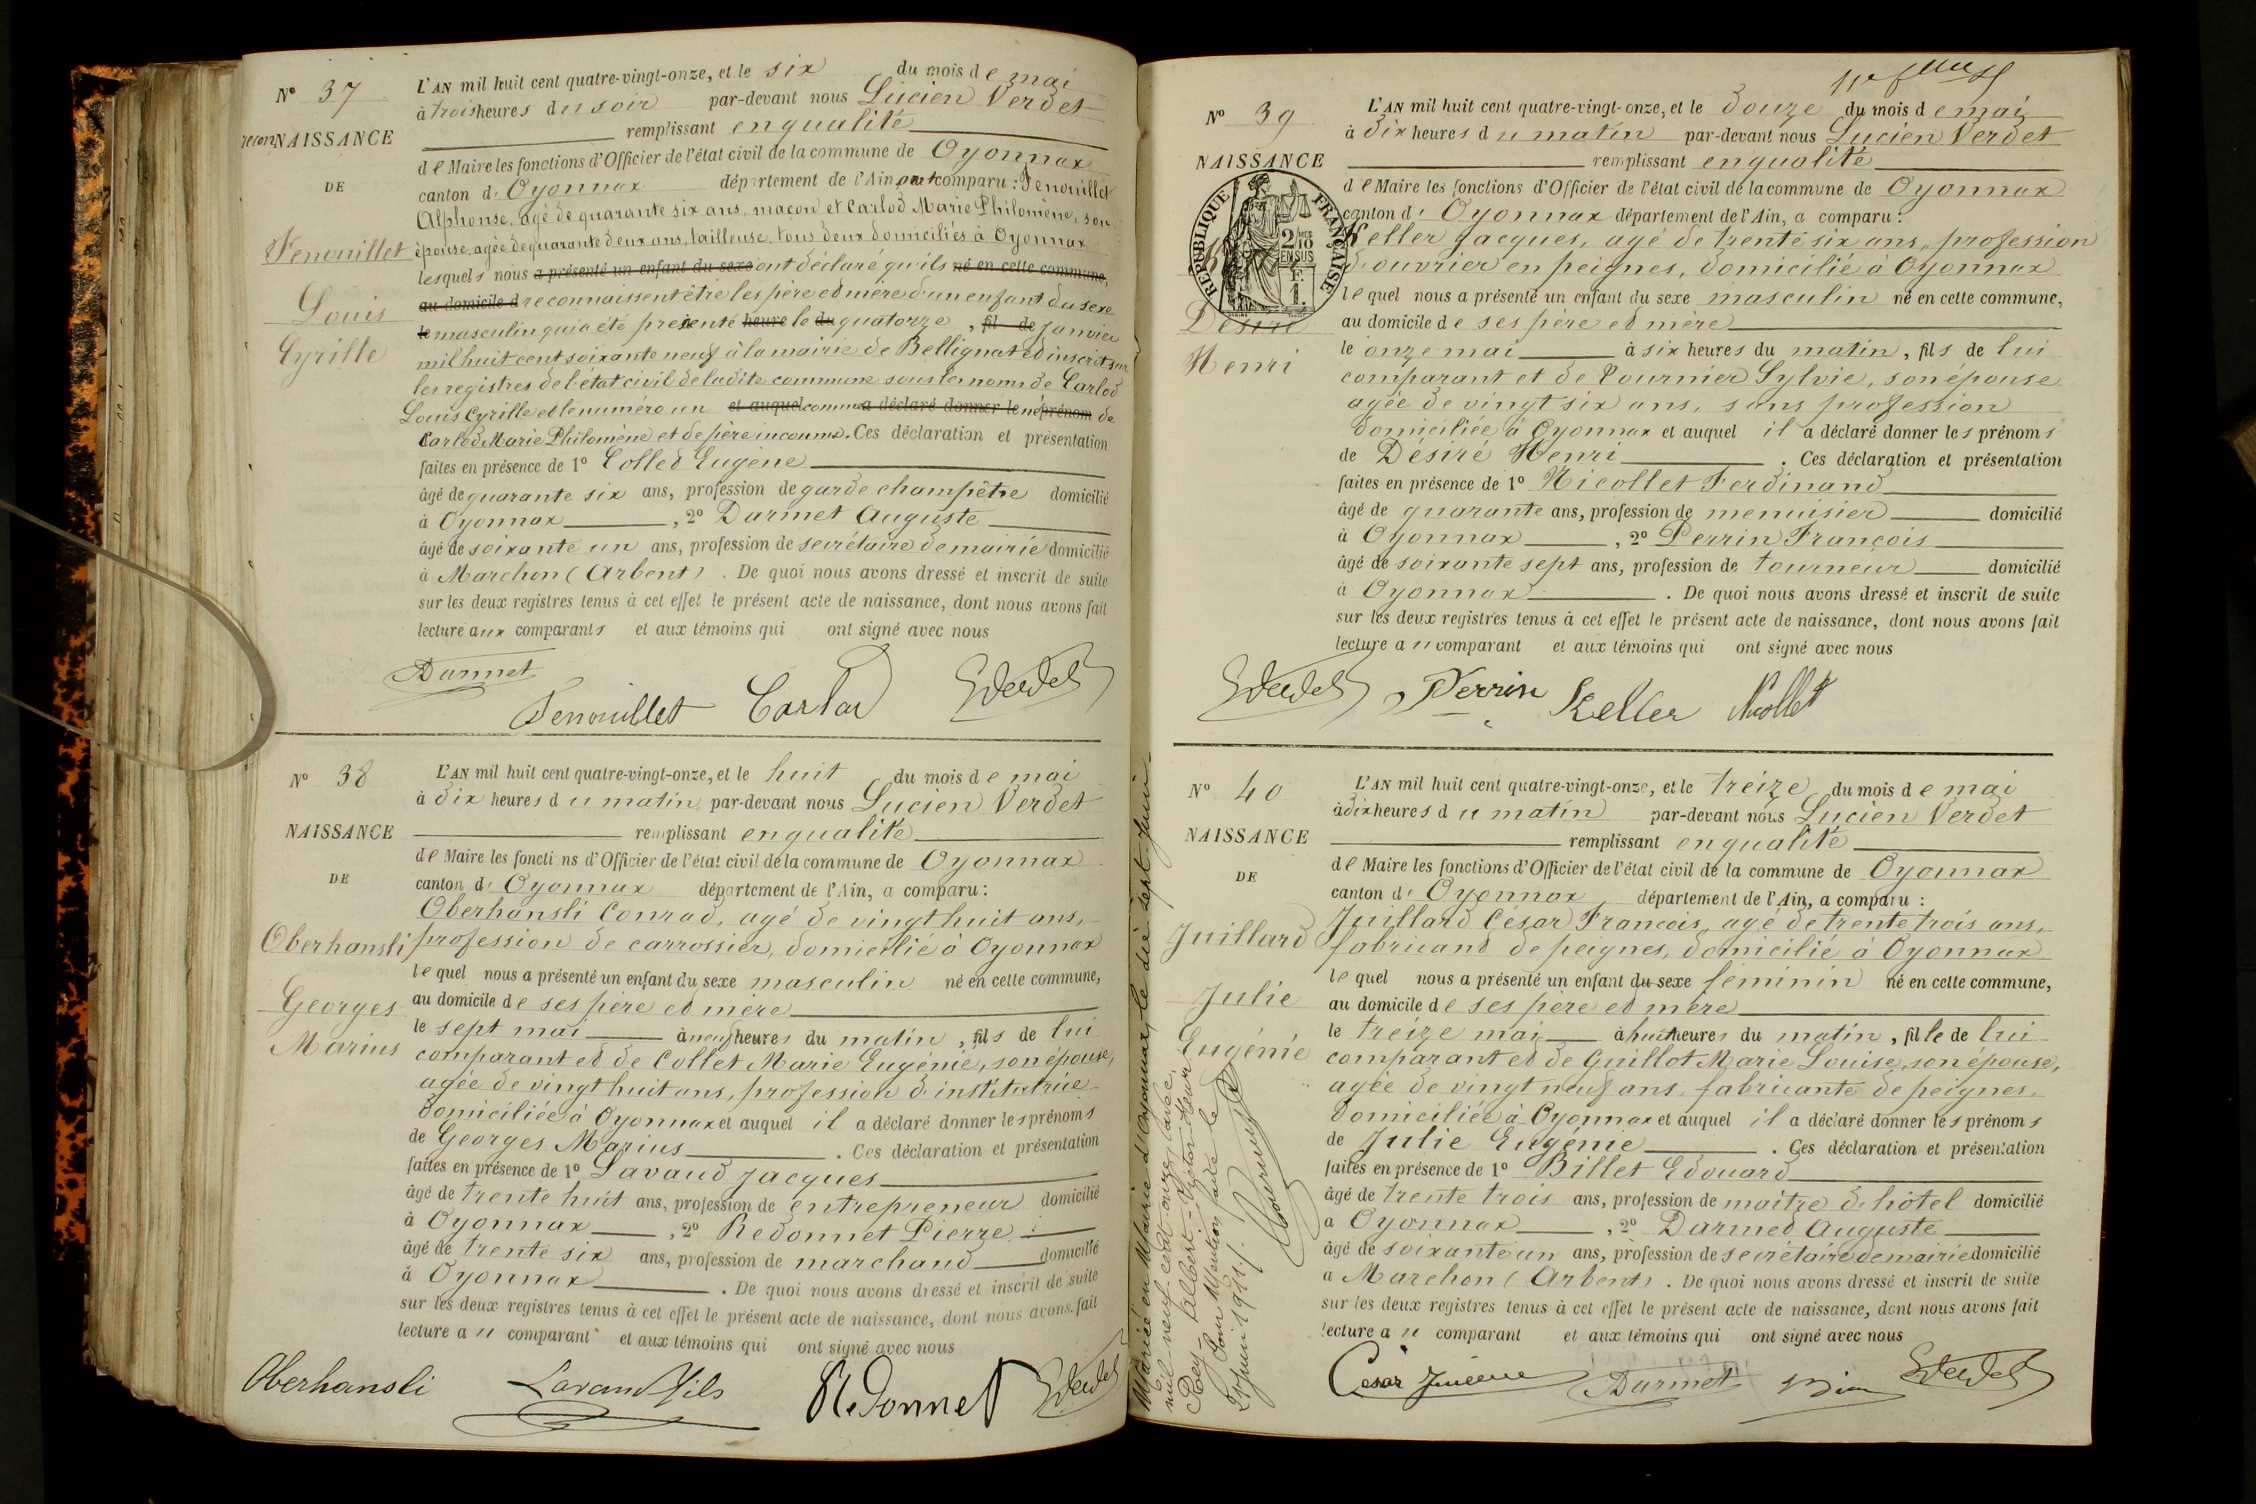 N° 37
recon NAISSANCE
DE
Fenouillet
Louis
Cyrille
L'AN mil huit cent quatre-vingt-onze, et le six du mois de mai
à trois heures du soir par-devant nous Lucien Verdet
remplissant en qualité
de Maire les fonctions d'Officier de l'état civil de la commune de Oyonnax
canton d' Oyonnax département de l'Ain, ont comparu : Fenouillet
Alphonse, agé de quarante six ans, maçon et Carlod Marie Philomène, son
épouse, agée de quarante deux ans, tailleuse, tous deux domiciliés à Oyonnax
lesquels nous a présenté un enfant du sexe ont déclaré qu'ils né en cette commune,
au domicile d reconnaissent être les père et mère d'un enfant du sexe
le masculin qui a été présenté heure le du quatorze , fil de janvier
mil huit cent soixante neuf à la mairie de Bellignat et inscrit sur
les registres de l'état civil de ladite commune sous les noms de Carlod
Louis Cyrille et le numéro un et auquel comme a déclaré donner le né prénom de
Carlod Marie Philomène et de père inconnu. Ces déclaration et présentation
faites en présence de 1° Collet Eugène
âgé de quarante six ans, profession de garde champêtre domicilié
à Oyonnax , 2° Darmet Auguste
âgé de soixante un ans, profession de secrétaire de mairie domicilié
à Marchon (Arbent) . De quoi nous avons dressé et inscrit de suite
sur les deux registres tenus à cet effet le présent acte de naissance, dont nous avons fait
lecture aux comparants et aux témoins qui ont signé avec nous
Darmet
Fenouillet Carlod LVerdet
N° 38
NAISSANCE
DE
Oberhansli
Georges
Marius
L'AN mil huit cent quatre-vingt-onze, et le huit du mois de mai
à dix heures du matin par-devant nous Lucien Verdet
remplissant en qualité
de Maire les fonctions d'Officier de l'état civil de la commune de Oyonnax
canton d' Oyonnax département de l'Ain, a comparu :
Oberhansli Conrad, agé de vingt huit ans,
profession de carrossier, domicilié à Oyonnax
lequel nous a présenté un enfant du sexe masculin né en cette commune,
au domicile de ses père et mère
le sept mai à neuf heures du matin , fils de lui
comparant et de Collet Marie Eugénie, son épouse,
agée de vingt huit ans, profession d'institutrice
domiciliée à Oyonnax et auquel il a déclaré donner les prénoms
de Georges Marius . Ces déclaration et présentation
faites en présence de 1° Lavaud Jacques
âgé de trente huit ans, profession de entrepreneur domicilié
à Oyonnax , 2° Redonnet Pierre
âgé de trente six ans, profession de marchand domicilié
à Oyonnax . De quoi nous avons dressé et inscrit de suite
sur les deux registres tenus à cet effet le présent acte de naissance, dont nous avons fait
lecture au comparant et aux témoins qui ont signé avec nous
Oberhansli Lavaud fils Redonnet LVerdet
N° 39
NAISSANCE
RÉPUBLIQUE FRANÇAISE
2/10 EN SUS
F. 1.
Désiré
Henri
L'AN mil huit cent quatre-vingt-onze, et le douze du mois de mai
à dix heures du matin par-devant nous Lucien Verdet
remplissant en qualité
de Maire les fonctions d'Officier de l'état civil de la commune de Oyonnax
canton d' Oyonnax département de l'Ain, a comparu :
Keller Jacques, agé de trente six ans, profession
d'ouvrier en peignes, domicilié à Oyonnax
lequel nous a présenté un enfant du sexe masculin né en cette commune,
au domicile de ses père et mère
le onze mai à six heures du matin , fils de lui
comparant et de Tournier Sylvie, son épouse
agée de vingt six ans, sans profession
domiciliée à Oyonnax et auquel il a déclaré donner les prénoms
de Désiré Henri . Ces déclaration et présentation
faites en présence de 1° Nicollet Ferdinand
âgé de quarante ans, profession de menuisier domicilié
à Oyonnax , 2° Perrin François
âgé de soixante sept ans, profession de tourneur domicilié
à Oyonnax . De quoi nous avons dressé et inscrit de suite
sur les deux registres tenus à cet effet le présent acte de naissance, dont nous avons fait
lecture au comparant et aux témoins qui ont signé avec nous
LVerdet Perrin Keller Nicollet
N° 40
NAISSANCE
DE
Juillard
Julie
Eugénie
L'AN mil huit cent quatre-vingt-onze, et le treize du mois de mai
à dix heures du matin par-devant nous Lucien Verdet
remplissant en qualité
de Maire les fonctions d'Officier de l'état civil de la commune de Oyonnax
canton d' Oyonnax département de l'Ain, a comparu :
Juillard César François, agé de trente trois ans,
fabricand de peignes, domicilié à Oyonnax
lequel nous a présenté un enfant du sexe féminin né en cette commune,
au domicile de ses père et mère
le treize mai à huit heures du matin , fille de lui
comparant et de Guillot Marie Louise, son épouse,
agée de vingt neuf ans, fabricante de peignes,
domiciliée à Oyonnax et auquel il a déclaré donner les prénoms
de Julie Eugénie . Ces déclaration et présentation
faites en présence de 1° Billet Edouard
âgé de trente trois ans, profession de maître d'hôtel domicilié
à Oyonnax , 2° Darmed Auguste
âgé de soixante un ans, profession de secrétaire de mairie domicilié
à Marchon (Arbent) . De quoi nous avons dressé et inscrit de suite
sur les deux registres tenus à cet effet le présent acte de naissance, dont nous avons fait
lecture au comparant et aux témoins qui ont signé avec nous
César Juillard Darmet LVerdet
Mariée en Mairie d'Oyonnax, le dix-sept Juin
mil-neuf-cent-onze, avec
Rey - Albert-Victor-Henri
Pour Mention faite le
Juin 1911.